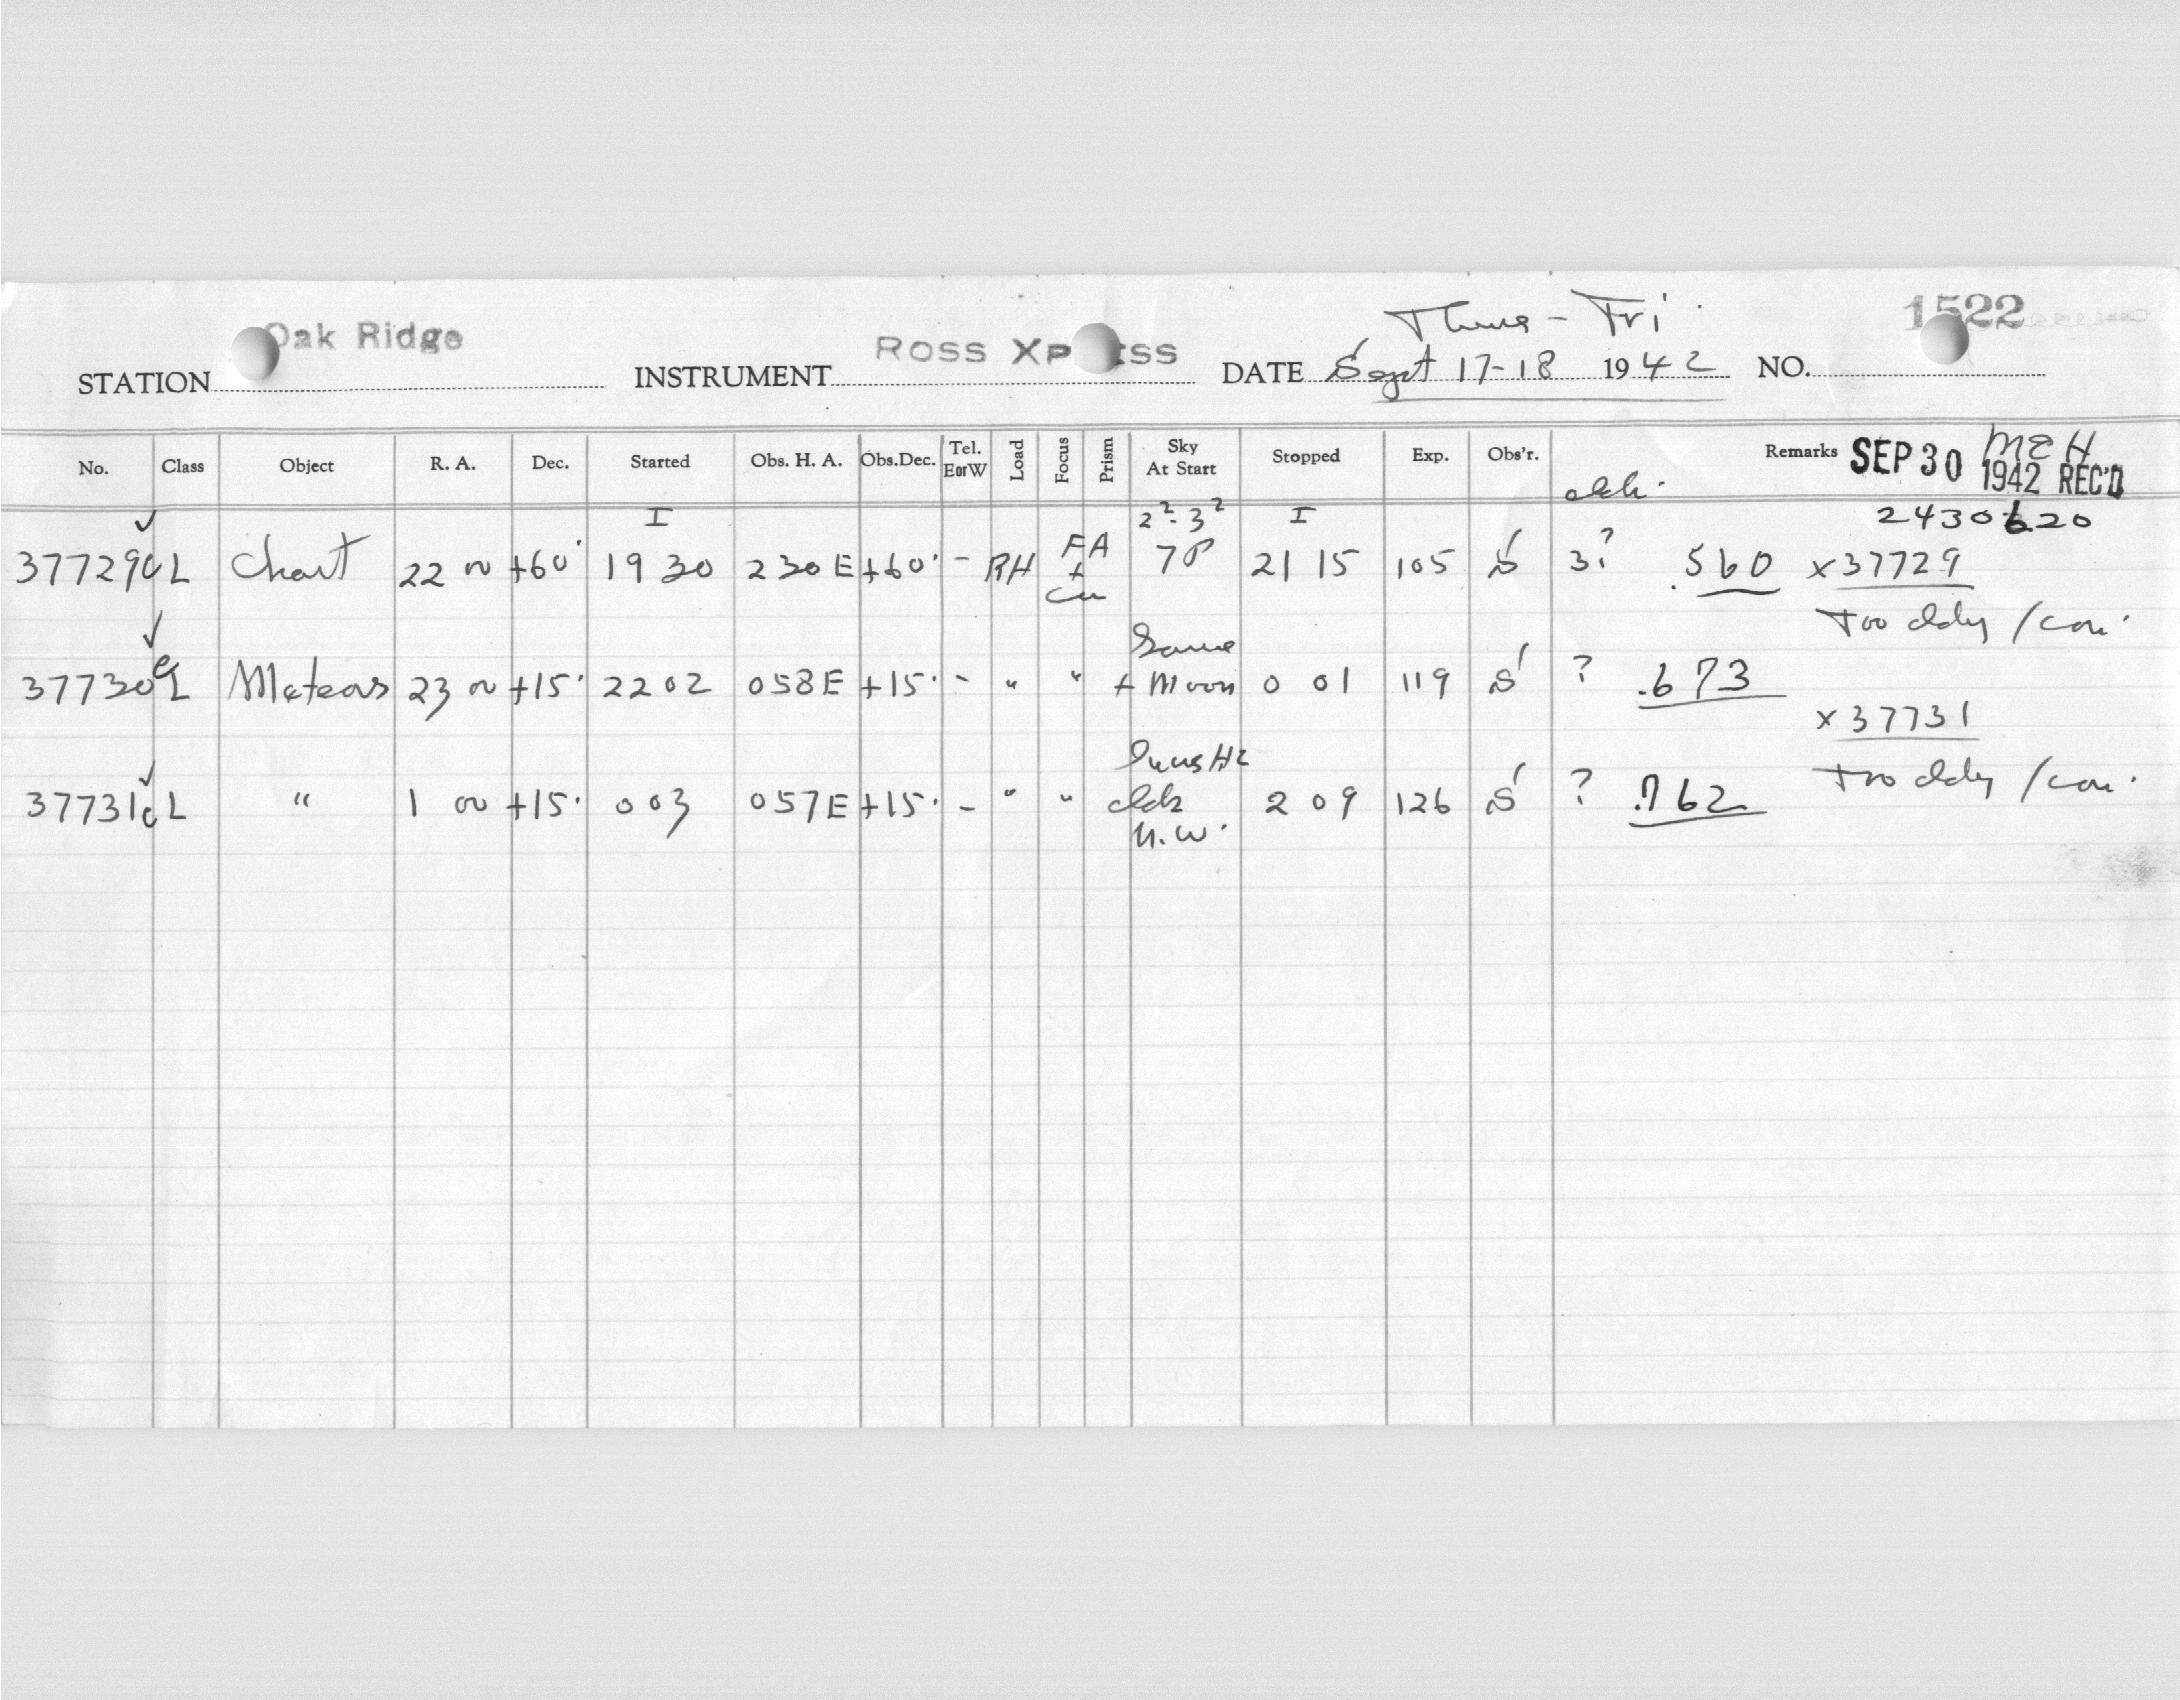 Oak Ridge Ross Xpress Thurs - Fri 1522
STATION INSTRUMENT DATE Sept 17-18 1942 NO.
No. Class Object R. A. Dec. Started Obs. H. A. Obs.Dec. Tel. EorW Load Focus Prism Sky At Start Stopped Exp. Obs'r. Remarks SEP 30 1942 REC'D MEH
I 2²-3² I 2430620
37729 c L Chart 22 00 +60° 19 30 2 30 E +60° - RH FA + Cu 7P 21 15 105 S 3? .560 x37729
Too cldy / con.
37730 e L Meteors 23 00 +15° 22 02 0 58 E +15° - " " Same + Moon 0 01 119 S ? .673
x37731
37731 c L " 1 00 +15° 0 03 0 57 E +15° - " " cldz N.W. 2 09 126 S ? .762 Too cldy / con.